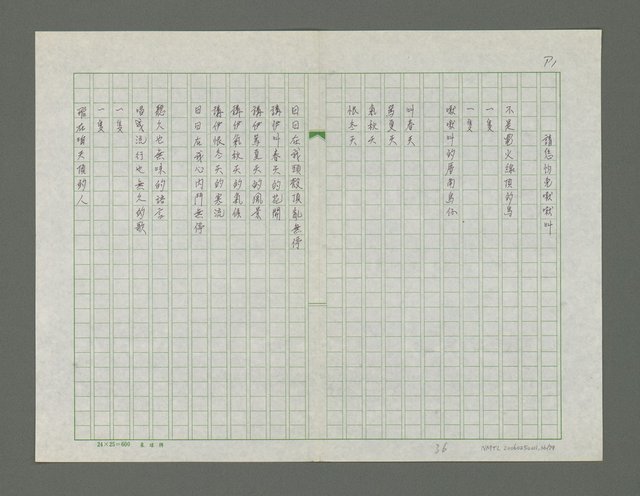 P1
請恁勿通啾啾叫
不是電火線頂的鳥
一隻
一隻
啾啾叫的厝角鳥仔
叫春天
罵夏天
氣秋天
恨冬天
日日在我頭殼頂亂無停
講伊叫春天的花開
講伊罵夏天的風景
講伊氣秋天的氣候
講伊恨冬天的寒流
日日在我心內鬥無停
聽久也無味的語言
唱幾流行也無久的歌
一隻
一隻
踮在頭頂的人
24×25=600
36